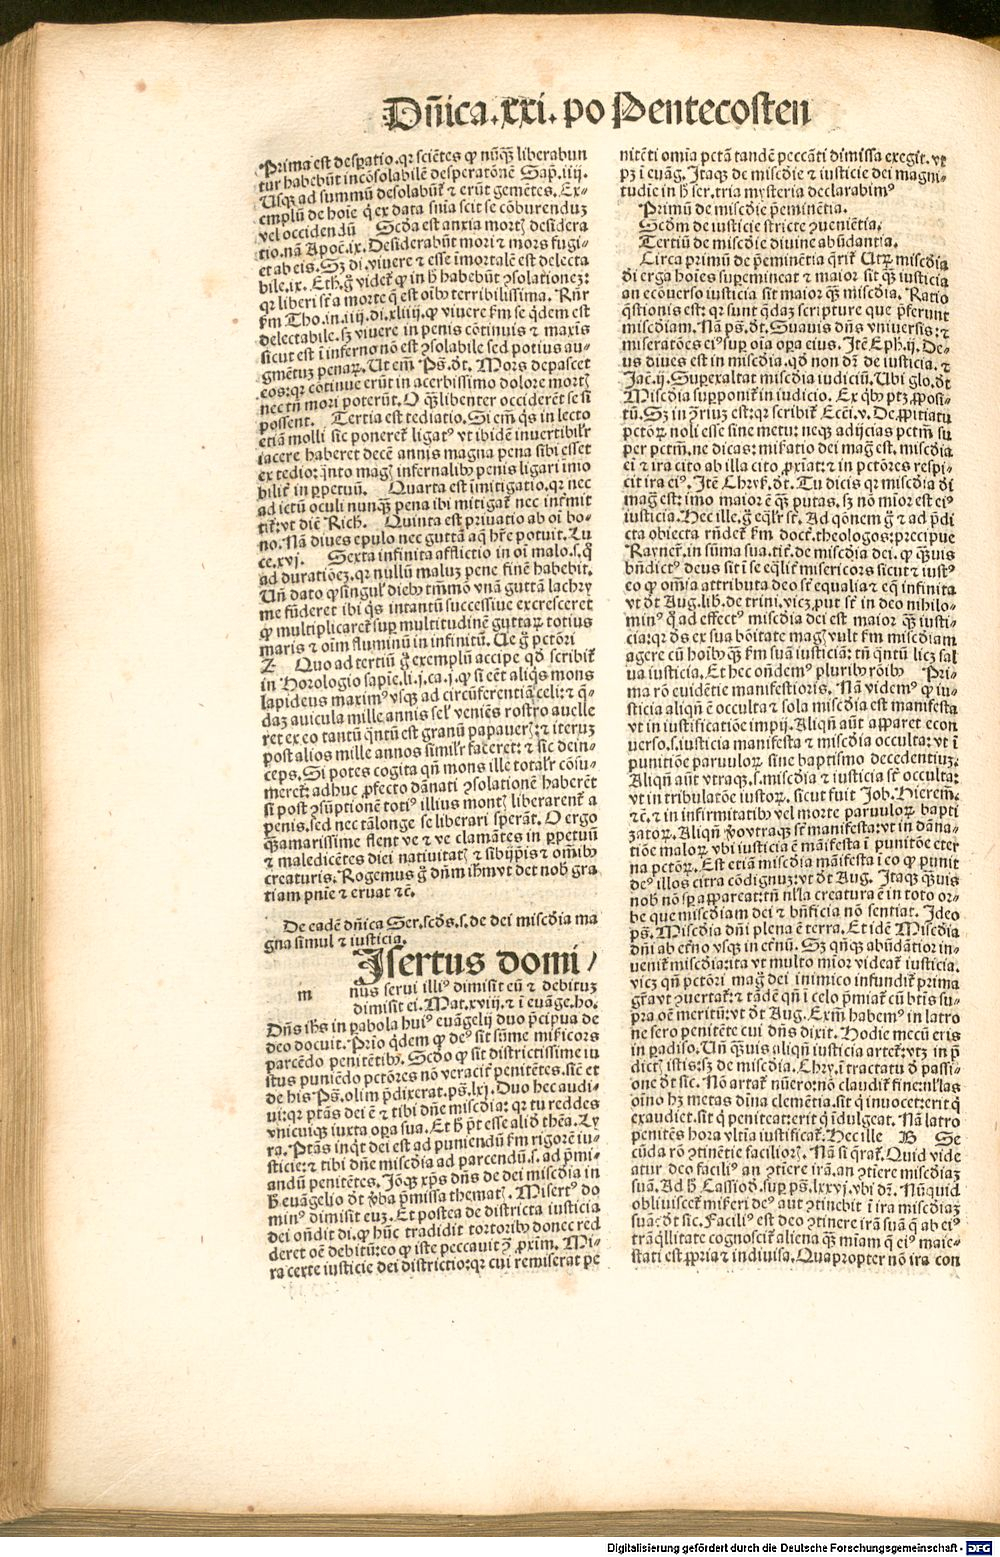 Dñica.xxi.po Pentecosten
Prima est despatio.qꝛ sciētes ꝙ nūq̄ʒ liberabun
tur habebūt incōsolabilē desperatōnē Sap̄.iiij.
Usqꝫ ad summū desolabūt᷑ ⁊ erūt gemētes. Ex⸗
emplū de hoīe q̇ ex data snīa scit se cōburenduʒ
vel occidendū Scd̄a est anxia mortꝭ desidera
tio.nā Apoc̄.ix. Desiderabūt mori ⁊ mors fugi⸗
et ab eis. Sʒ di. viuere ⁊ esse īmortalē est delecta
bile.ix. Eth.g̊ videt᷑ ꝙ in h̄ habebūt ꝯsolationeʒ:
qꝛ liberi st̄ a morte q̄ est oībꝰ terribilissima. Rn̄r
ẜm Tho.in.iiij.di.xliiij.ꝙ viuere ẜm se q̇dem est
delectabile.sʒ viuere in penis cōtinuis ⁊ maxīs
sicut est ī inferno nō est ꝯsolabile sed potius au⸗
gmētuʒ penaꝝ. Ut em̄ Ps̄.dt̄. Mors depascet
eos:qꝛ cōtinue erūt in acerbissimo dolore mortꝭ
nec tn̄ mori poterūt. O q̄ʒ libenter occiderēt se si
possent. Tertia est tediatio. Si em̄ q̇s in lecto
etiā molli sic poneret᷑ ligatꝰ vt ibidē inuertibil'r
iacere haberet decē annis magna pena sibi esset
ex tedio:q̄nto magꝭ infernalibꝰ penis ligari īmo
bilit᷑ in ꝑpetuū. Quarta est īmitigatio.qꝛ nec
ad ictū oculi nunqʒ̄ pena ibi mitigat᷑ nec int᷑mit
tit᷑:vt diē Rich. Quinta est priuatio ab oī bo⸗
no. Nā diues epulo nec guttā aq̄ hr̄e potuit. Lu
ce.xvj. Sexta infinita afflictio in oī malo.s.q̊
ad duratiōeʒ.qꝛ nullū maluʒ pene finē habebit.
Un̄ dato ꝙ singul' diebꝰ tm̄mō vnā guttā lachry
me fūderet ibi q̇s intantū successiue excresceret
ꝙ multiplicaret᷑ sup̄ multitudinē guttaꝝ totius
maris ⁊ oīm fluminū in infinitū. Ue g̊ petōri
Z Quo ad tertiū g̊ exemplū accipe qd̄ scribit᷑
in Horologio sapie.li.j.ca.j.ꝙ si eēt aliq̇s mons
lapideus maximꝰ vsqʒ ad circūferentiā celi:⁊ q̄⸗
daʒ auicula mille annis sel' veniēs rostro auelle
ret ex eo tantū q̄ntū est granū papauerꝭ:⁊ iteruʒ
post alios mille annos simil'r faceret:⁊ sic dein⸗
ceps. Si potes cogita qn̄ mons ille total'r cōsu⸗
meret᷑:adhuc ꝓfecto dānati ꝯsolationē haberēt
si post ꝯsūptionē totiꝰ illius montꝭ liberarent᷑ a
penis.sed nec tālonge se liberari sperāt. O ergo
q̄ʒ amarissime flent ve ⁊ ve clamātes in ꝑpetuū
⁊ maledicētes diei natiuitatꝭ ⁊ sibijp̄is ⁊ om̄ibꝰ
creaturis. Rogemus g̊ dn̄m ihm̄ vt det nob̄ gra
tiam pn̄ie ⁊ eruat ⁊c̄.
De eadē dn̄ica Ser.scd̄s.s.de dei misc̄dia ma
gna simul ⁊ iusticia.
Isertus domi/
m nus serui illiꝰ dimisit eū ⁊ debituʒ
dimisit ei. Mat.xviij.⁊ ī euāge.ho.
Dn̄s ihs̄ in ꝑabola huiꝰ euāgelij duo p̄cipua de
deo docuit. Prīo q̇dem ꝙ deꝰ sit sūme mīicors
parcēdo penitētibꝰ. Scd̄o ꝙ sit districtissime iu
stus puniēdo petōres nō veracit᷑ penitētes.siē et
de his Ps̄.olim p̄dixerat.ps̄.lxj. Duo hec audi⸗
ui:qꝛ ptās dei ē ⁊ tibi dn̄e misc̄dia:qꝛ tu reddes
vnicuiqʒ iuxta oꝑa sua. Et h̄ p̄t esse aliḋ thēa. Ly
ra. Ptās inq̇t dei est ad puniendū ẜm rigorē iu⸗
sticie:⁊ tibi dn̄e misc̄dia ad parcendū.s.ad p̄mi⸗
andū penitētes. Iō̄qʒ xp̄s dn̄s de dei misc̄dia in
h̄ euāgelio dt̄ v̓ba p̄missa thematꝭ. Misertꝰ do
minꝰ dimisit euʒ. Et postea de districta iusticia
dei on̄dit di.ꝙ hūc tradidit tortoribꝰ donec red
deret oē debitū:eo ꝙ iste peccauit ꝯ̄ ꝓxīm. Mi⸗
ra certe iusticie dei districtio:qꝛ cui remiserat pe
nitēti omīa pctā tandē peccāti dimissa exegit.vt
pʒ ī euāg. Itaqʒ de misc̄die ⁊ iusticie dei magni⸗
tudīe in h̄ ser.tria mysteria declarabimꝰ
Primū de misc̄die p̄eminētia.
Scd̄m de iusticie stricte ꝯueniētia.
Tertiū de misc̄die diuine abūdantia.
Circa primū de p̄eminētia q̄rit᷑ Utꝝ misc̄dia
di erga hoīes suꝑemineat ⁊ maior sit q̄ʒ iusticia
an ecōuerso iusticia sit maior q̄ʒ misc̄dia. Ratio
q̄stionis est:qꝛ sunt q̄daʒ scripture que p̄ferunt
misc̄diam. Nā ps̄.dt̄. Suauis dn̄s vniuersis:⁊
miseratōes eiꝰ suꝑ oīa oꝑa eius. Itē Eph.ij. De⸗
us diues est in misc̄dia.qd̄ non dr̄ de iusticia.⁊
Jac̄.ij. Suꝑexaltat misc̄dia iudiciū. Ubi glo.dt̄
Misc̄dia suꝑponit᷑ in iudicio. Ex q̇bꝰ ptʒ ꝓposi⸗
tū. Sʒ in ꝯ̄rius est:qꝛ scribit᷑ Ecci.v. De ꝓpitiatu
pctōꝝ noli esse sine metu: neqʒ adijcias pctm̄ su
per pctm̄.ne dicas: miẜatio dei mag̊ est. misc̄dia
ei᷑ ⁊ ira cito ab illa cito ꝓxīat:⁊ in pctōres respi⸗
cit ira eiꝰ. Itē Chryẜ.dt̄. Tu dicis qꝛ misc̄dia di
mag̊ est:imo maior ē q̄ʒ putas.sʒ nō mīor est eiꝰ
iusticia. Hec ille.g̊ eq̄l'r st̄. Ad qōnem g̊ ⁊ ad p̄di
cta obiecta rn̄det᷑ ẜm doct᷑.theologos:precipue
Rayner̄.in sūma sua.tit᷑.de misc̄dia dei.ꝙ q̄ʒuis
bn̄dictꝰ deus sit ī se eq̄lit᷑ misericors sicut ⁊ iustꝰ
eo ꝙ om̄ia attributa deo st̄ equalia ⁊ eq̄ infinita
vt dt̄ Aug.lib.de trini.vicʒ put st̄ in deo nihilo⸗
minꝰ q̊ ad effectꝰ misc̄dia dei est maior q̄ʒ iusti⸗
cia:qꝛ ds̄ ex sua bōitate magꝭ vult ẜm misc̄diam
agere cū hoībꝰ q̄ʒ ẜm suā iusticiā:tn̄ q̄ntū licʒ sal
ua iusticia. Et hec on̄demꝰ pluribꝰ rōibꝰ Pri⸗
ma rō euidētie manifestioris. Nā videmꝰ ꝙ iu⸗
sticia aliqn̄ ē occulta ⁊ sola misc̄dia est manifesta
vt in iustificatiōe impij. Aliqn̄ aūt apparet econ
uerso.s.iusticia manifesta ⁊ misc̄dia occulta:vt ī
punitiōe paruuloꝝ sine baptismo decedentiuʒ.
Aliqn̄ aūt vtraqʒ.s.misc̄dia ⁊ iusticia st̄ occulta:
vt in tribulatōe iustoꝝ. sicut fuit Job. Hierem̄.
⁊c̄.⁊ in infirmitatibꝰ vel morte paruuloꝝ bapti
zatoꝝ. Aliqn̄ v̓o vtraqʒ st̄ manifesta:vt in dāna⸗
tiōe maloꝝ vbi iusticia ē māifesta ī punitōe eter
na petōꝝ. Est etiā misc̄dia māifesta ī eo ꝙ punit
deꝰ illos citra cōdignuʒ:vt dt̄ Aug. Itaqʒ q̄ʒuis
nob̄ nō sꝑ appareat:tn̄ nl'la creatura ē in toto or⸗
be que misc̄diam dei ⁊ bn̄ficia nō sentiat. Ideo
ps̄. Misc̄dia dn̄i plena ē terra. Et idē Misc̄dia
dn̄i ab et̓no vsqʒ in et̓nū. Sʒ qn̄qʒ abūdātior in⸗
uenit᷑ misc̄dia:ita vt multo mīor videat᷑ iusticia.
vicʒ qn̄ petōri mag̊ dei inimico infundit᷑ prima
gr̄a vt ꝯuertat᷑:⁊ tādē qn̄ ī celo p̄miat᷑ cū btīs su⸗
pra oē meritū:vt dt̄ Aug. Exm̄ habemꝰ in latro
ne sero penitēte cui dn̄s dixit. Hodie mecū eris
in ꝑadiso. Un̄ q̄ʒuis aliqn̄ iusticia artet᷑:vtʒ in p̄
dictꝭ istis:sʒ de misc̄dia. Chry.ī tractatu ḋ passi⸗
one dt̄ sic. Nō artat᷑ nūero:nō claudit᷑ fine:nl'las
oīno hʒ metas dīna clemētia.sit q̇ inuocet:erit q̇
exaudiet.sit q̇ peniteat:erit q̇ īdulgeat. Nā latro
penitēs hora vltīa iustificat᷑. Hec ille B Se
cūda rō ꝯtinētie facilioꝝ. Nā si q̄rat᷑. Quid vide
atur deo faciliꝰ an ꝯtiere irā.an ꝯtiere misc̄diaʒ
suā. Ad h̄ Cassioḋ.suꝑ ps̄.lxxvj.vbi dr̄. Nūquid
obliuiscet᷑ miẜeri deꝰ aut ꝯtinebit ī ira misc̄diaʒ
suā:dt̄ sic. Faciliꝰ est deo ꝯtinere irā suā q̄ ab eiꝰ
trāq̇llitate cognoscit᷑ aliena q̄ʒ mīam q̄ eiꝰ maie⸗
stati est ꝓpria ⁊ indiuisa. Quapropter nō ira con
Digitalisierung gefördert durch die Deutsche Forschungsgemeinschaft - DFG